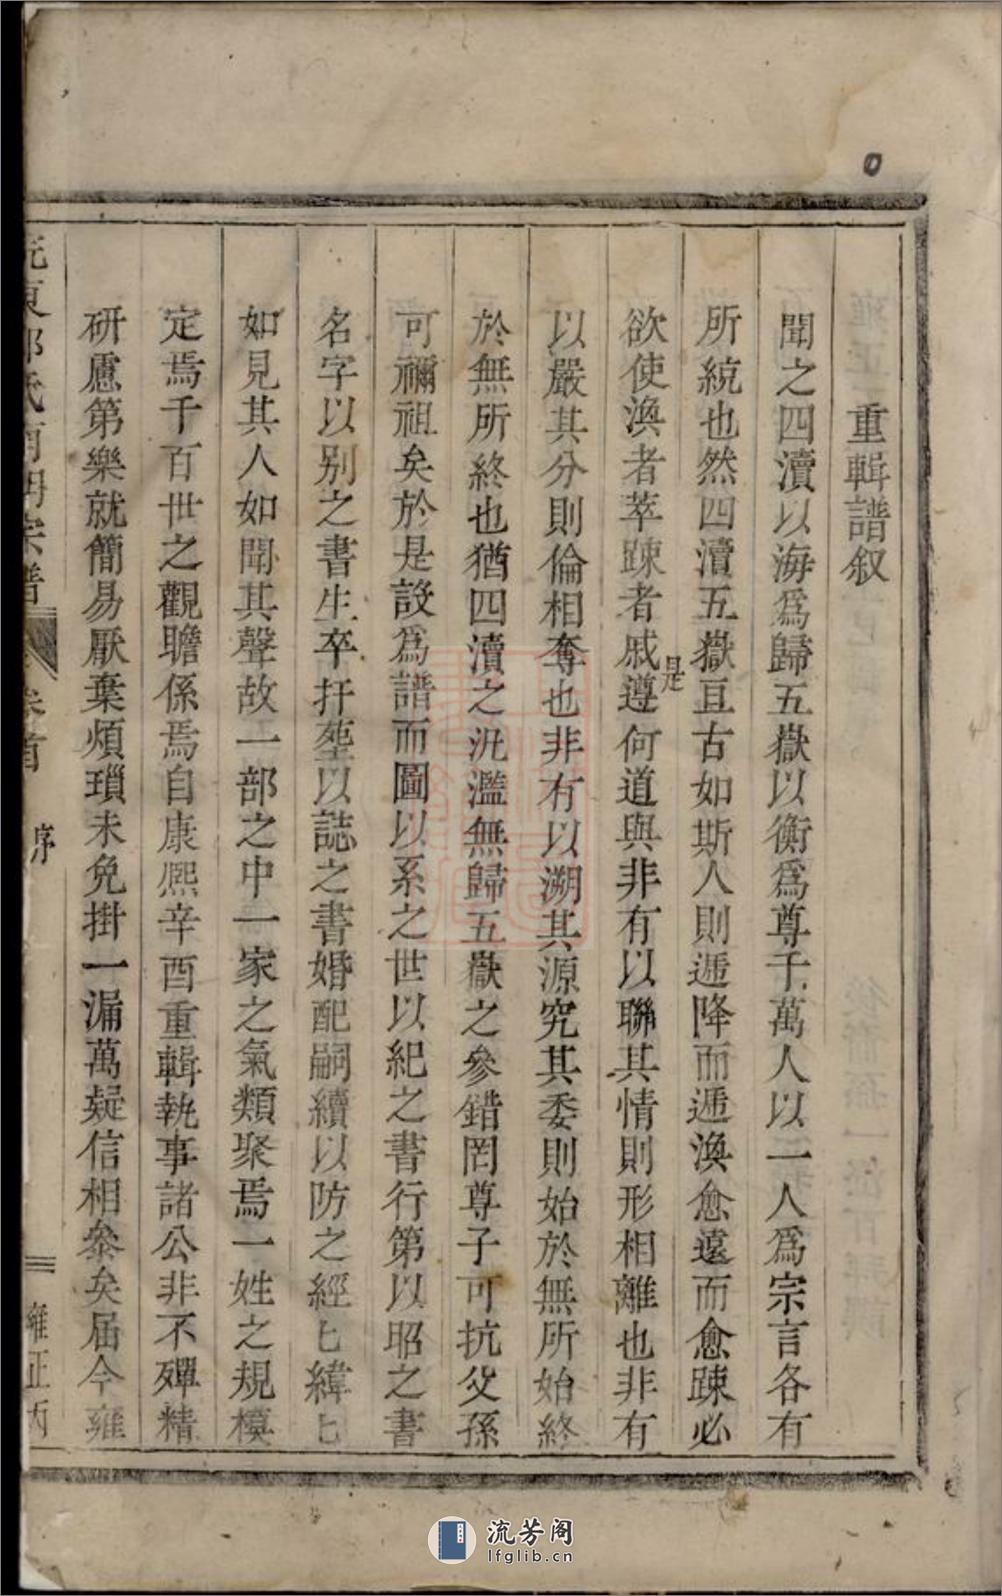 重輯譜叙
聞之四瀆以海爲歸五嶽以衡爲尊千萬人以一人爲宗言各有
所統也然四瀆五嶽亘古如斯人則遞降而遞渙愈遠而愈踈必
欲使渙者萃踈者戚遵是何道與非有以聯其情則形相離也非有
以嚴其分則倫相奪也非有以溯其源究其委則始於無所始終
於無所終也猶四瀆之汎濫無歸五嶽之參錯罔尊子可抗父孫
可禰祖矣於是設爲譜而圖以系之世以紀之書行第以昭之書
名字以別之書生卒扞塟以誌之書婚配嗣續以防之經匕緯匕
如見其人如聞其聲故一部之中一家之氣類聚焉一姓之規模
定焉千百世之觀瞻係焉自康熙辛酉重輯執事諸公非不殫精
研慮第樂就簡易厭棄煩瑣未免掛一漏萬疑信相叅矣届今雍
東 氏南 宗譜 卷首 序 雍正丙
流芳阁
lfglib.cn